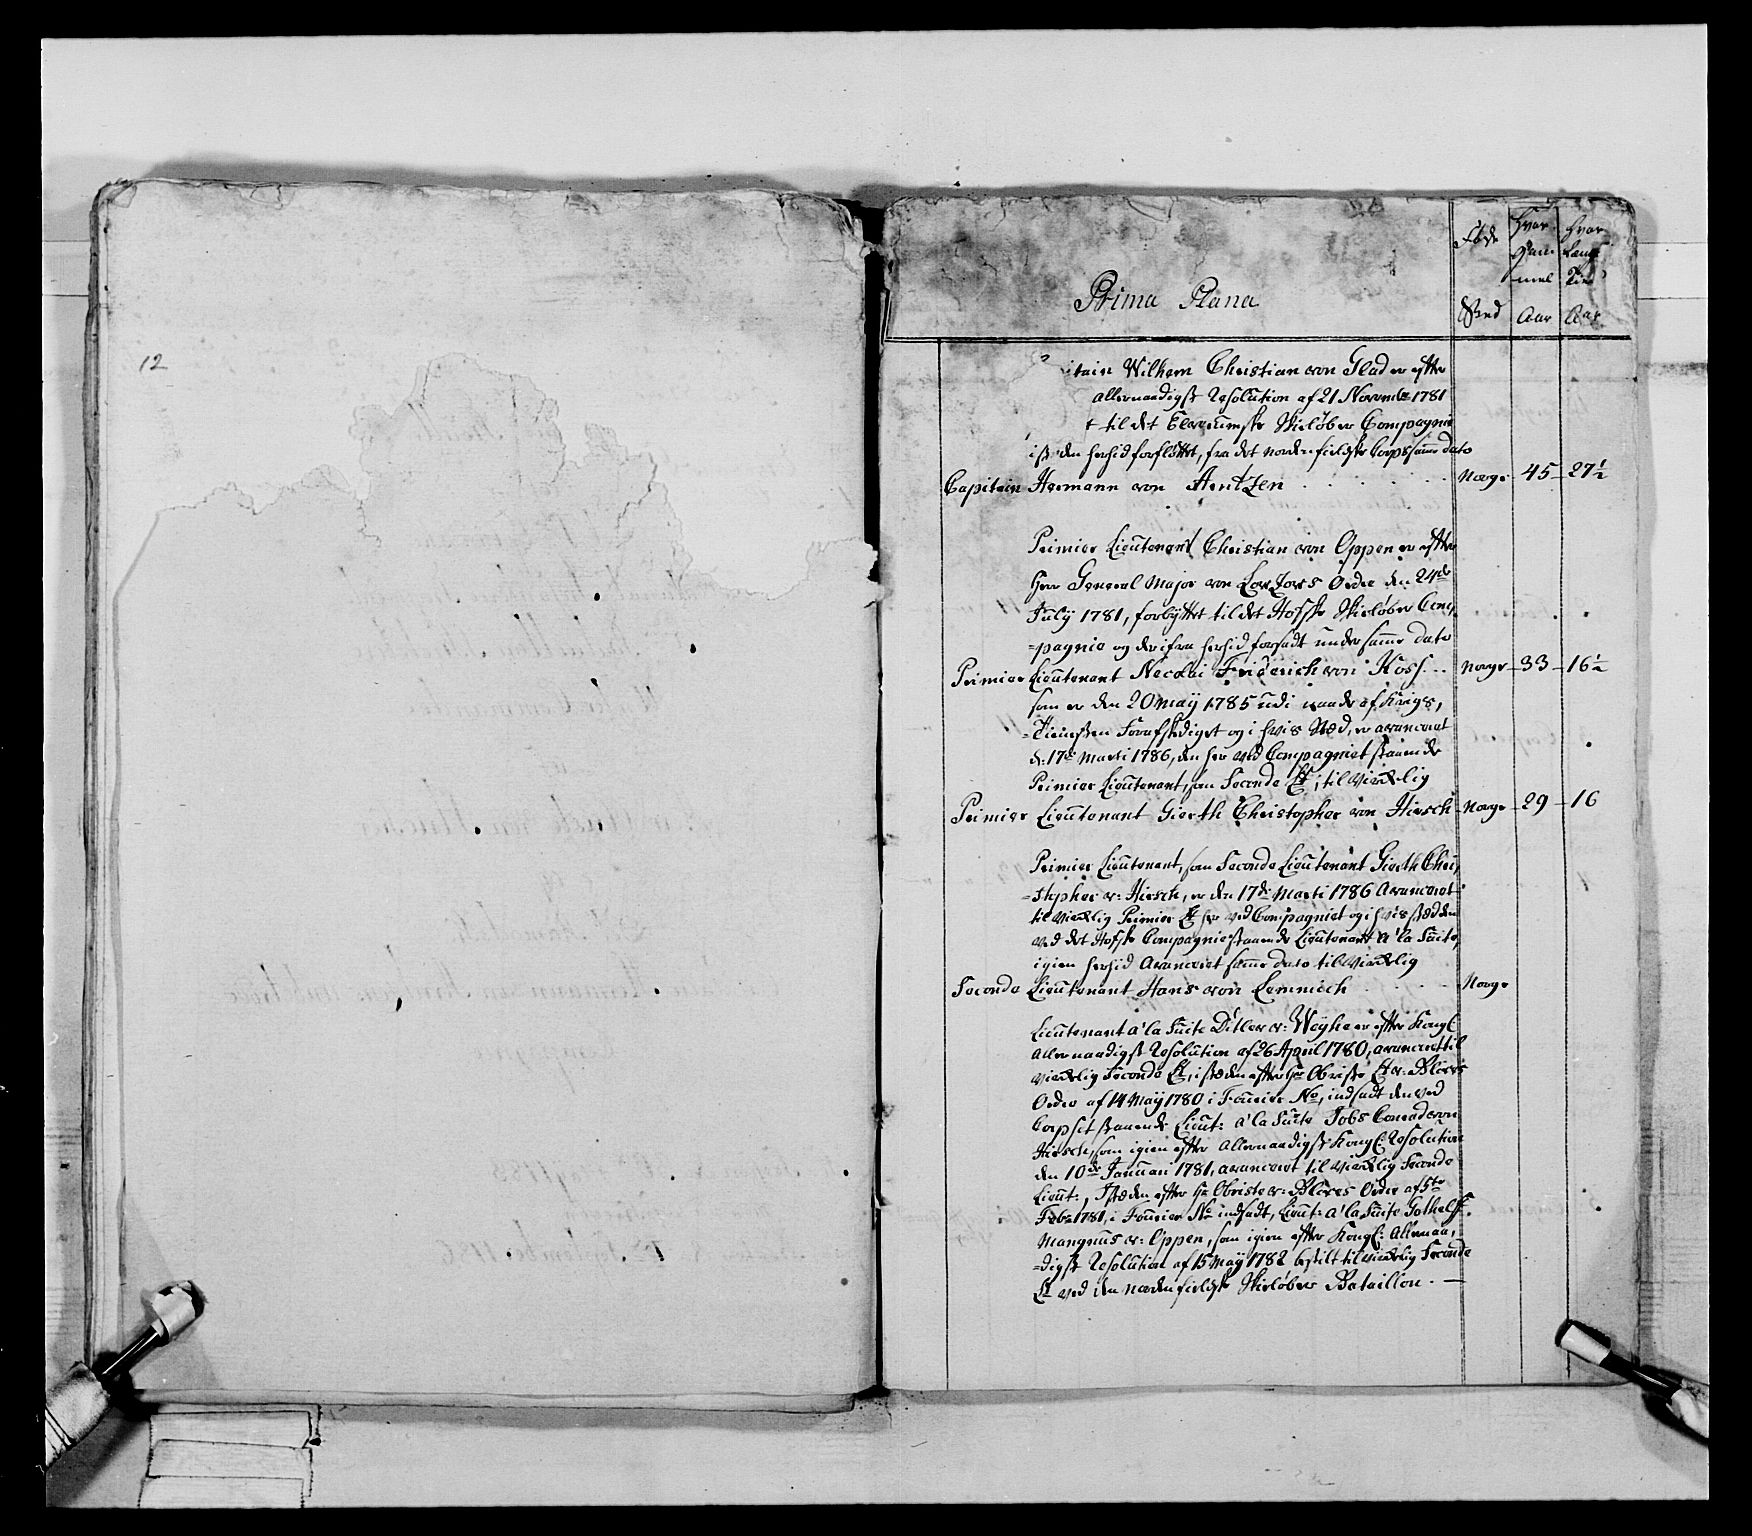 12
Prima Plana
Føde
Stæd
Hvor
Gam
mel
Aar
Hvor
Lang
Tien
Aar
itain Wilhem Christian von Glad er efter
allernaadigst Resolution af 21 Novembr 1781
t til det Elverumske Skieløber Compagnie
ist den herhid forfløttet, fra det nordenfieldske Corps samme dato
Capitain Hermann von Arntzen Norge 45 27½
Premier Lieutenant Christian von Oppen er efter
Herr General Major von Ordre den 24de
July 1781, forbyttet til det Hofske Skieløber Com,
=pagnie og derifra herhid forsadt under samme dato
Premier Lieutenant Necolai Friderich von Koss Norge 33 16½
som er den 20 May 1785 udi naade af Krigs,
=Tienesten Forafskediget og i hvis Stæd, er avanceret
d: 17de Marti 1786, den her ved Compagniet staaende
Premier Lieutenant, som Seconde Lt, til virkelig
Premier Lieutenant Gierth Christopher von Hirsch Norge 29 16
Premier Lieutenant, som Seconde Lieutenant Gierth Chri,
=stopher v: Hirsch, er den 17de Marti 1786 Avanceret
til virkelig Premier Lt her ved Compagniet og i hvis stæd den
ved det Hofske Compagnie staaende Lieutenant a'la Suite,
igien herhid Avanceret samme dato til virkelig
Seconde Lieutenant Hans von Lemmich Norge
Lieutenant a'la Suite Ditlev v: Weyhe er efter Kongl:
Allernaadigst Resolution af 26 April 1780, avanceret til
virkelig Seconde Lt, i stæden efter Hr Obriste Lt v: Blixes
Ordre af 14 May 1780 i No, indsadt den ved
Corpset staaende Lieut: a'la Suite Jobs Conrad von
Hirsch, som igien efter Allernaadigst Kongl: Resolution
den 10de Januari 1781, avanceret til virkelig Seconde
Lieut:, I stæden efter Hr Obriste v: Blixes Ordre af 5te
Febr 1781, i No indsadt, Lieut: a'la Suite Gothelf F.
Mangnus v: Oppen, som igien efter Kongl: Allernaa,
=digst Resolution af 15 May 1782 bestilt til virkelig Seconde
Lt ved den nordenfieldske Skieløber Bataillon.